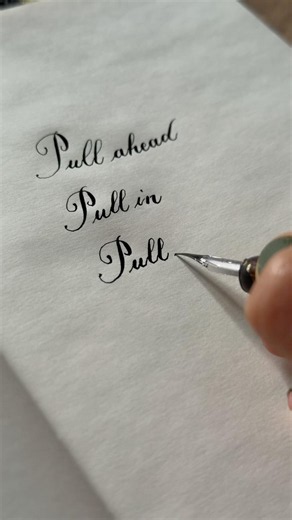 Pull ahead
Pull in
Pull